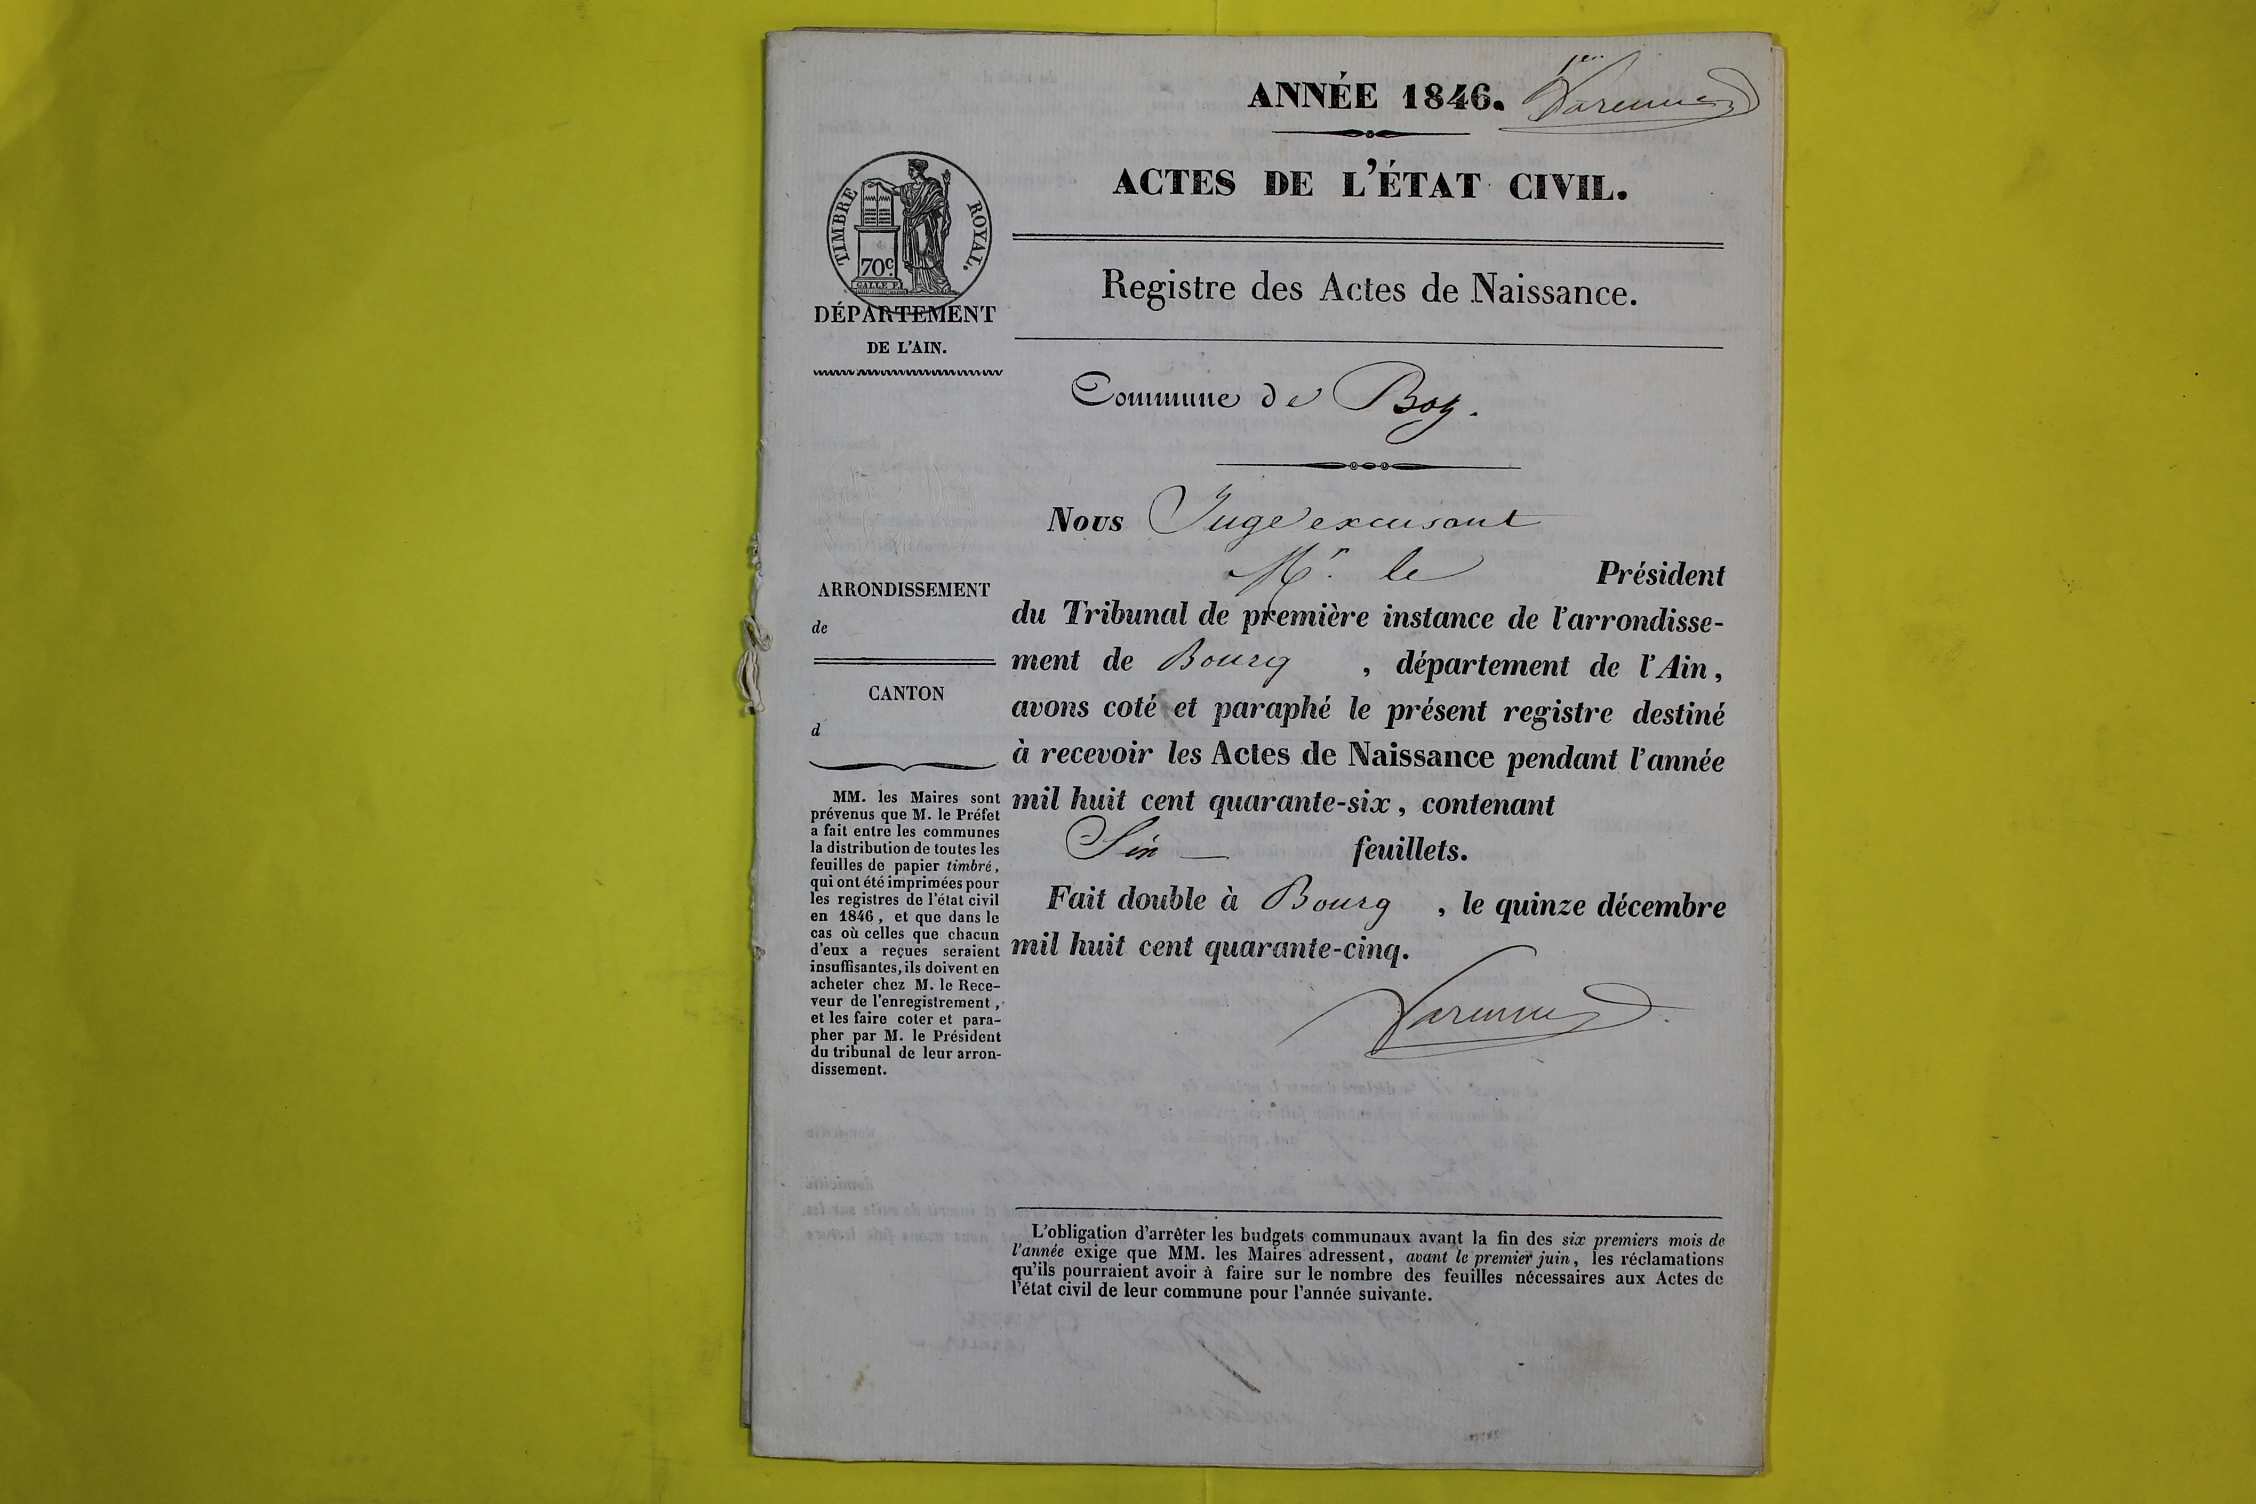 1er
ANNÉE 1846. Varenne
ACTES DE L'ÉTAT CIVIL.
TIMBRE ROYAL.
70c.
Registre des Actes de Naissance.
DÉPARTEMENT
DE L'AIN.
Commune de Boz.
Nous Juge excusant
Mr. le Président
du Tribunal de première instance de l'arrondisse-
ment de Bourg, département de l'Ain,
avons coté et paraphé le présent registre destiné
à recevoir les Actes de Naissance pendant l'année
mil huit cent quarante-six, contenant
Six feuillets.
Fait double à Bourg, le quinze décembre
mil huit cent quarante-cinq.
Varenne
ARRONDISSEMENT
de
CANTON
d
MM. les Maires sont
prévenus que M. le Préfet
a fait entre les communes
la distribution de toutes les
feuilles de papier timbré,
qui ont été imprimées pour
les registres de l'état civil
en 1846, et que dans le
cas où celles que chacun
d'eux a reçues seraient
insuffisantes, ils doivent en
acheter chez M. le Rece-
veur de l'enregistrement,
et les faire coter et para-
pher par M. le Président
du tribunal de leur arron-
dissement.
L'obligation d'arrêter les budgets communaux avant la fin des six premiers mois de
l'année exige que MM. les Maires adressent, avant le premier juin, les réclamations
qu'ils pourraient avoir à faire sur le nombre des feuilles nécessaires aux Actes de
l'état civil de leur commune pour l'année suivante.